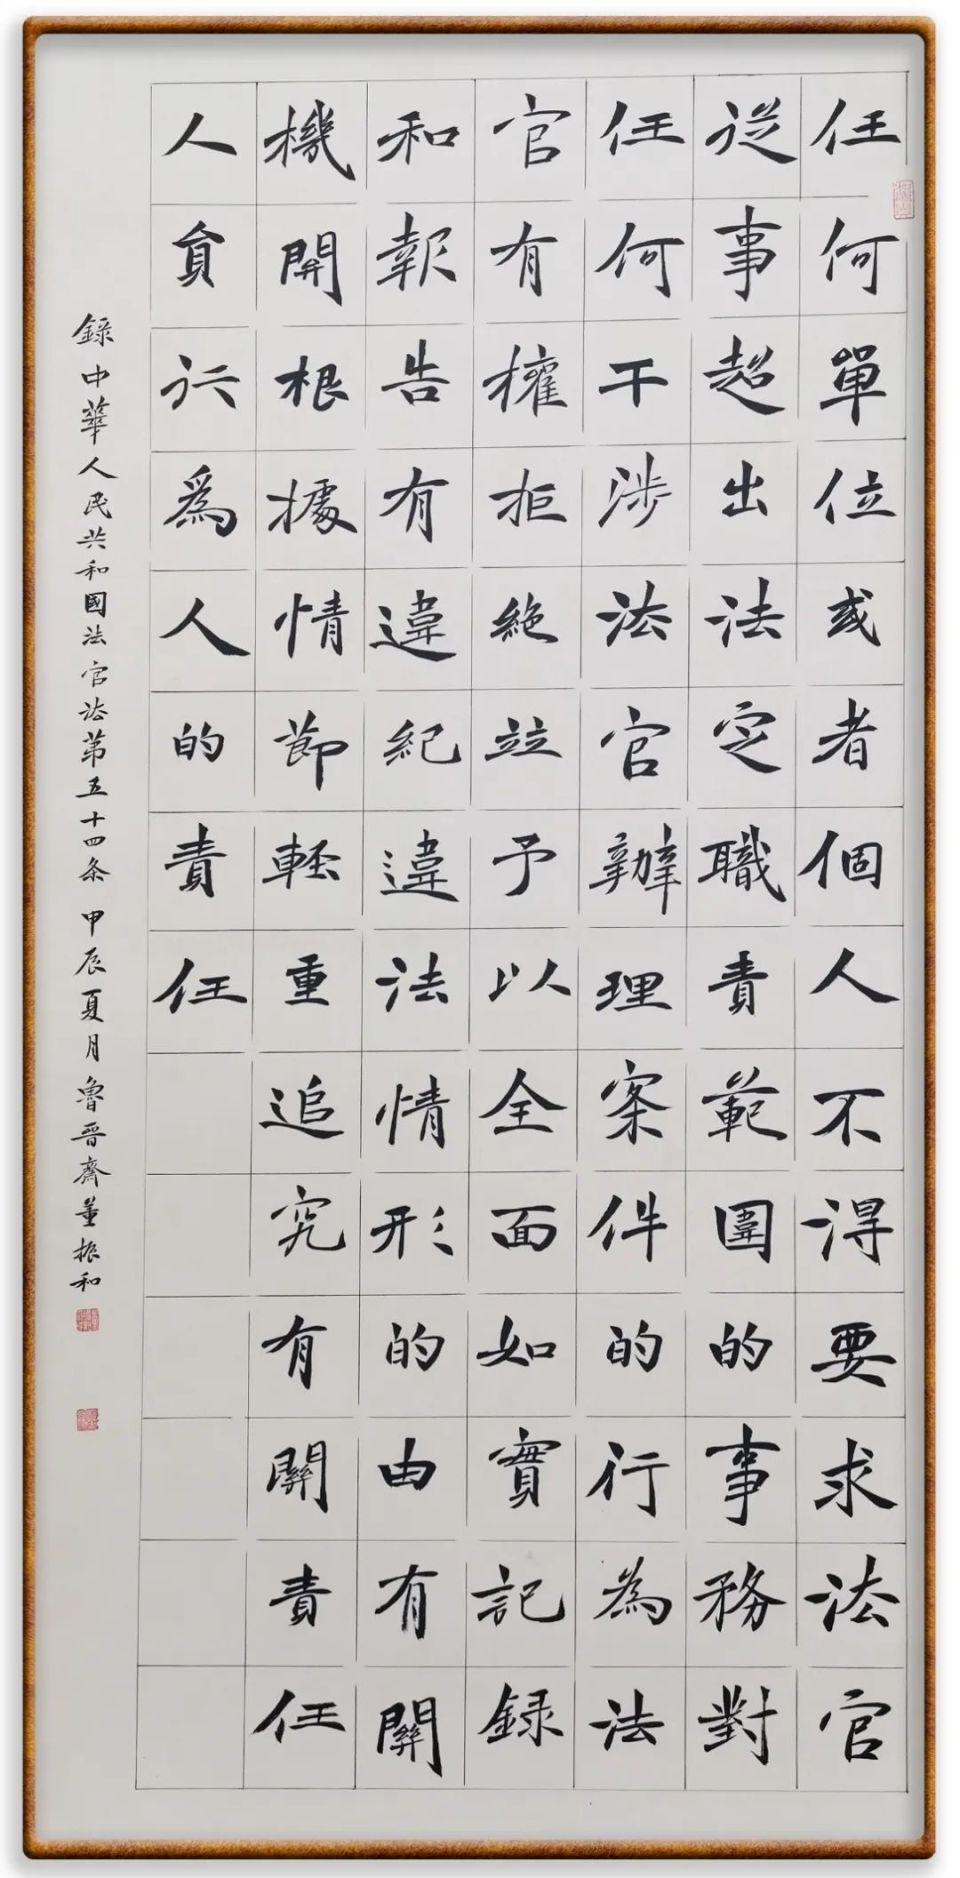 任何單位或者個人不得要求法官
從事超出法定職責範圍的事務對
任何干涉法官辦理案件的行為法
官有權拒絕並予以全面如實記錄
和報告有違紀違法情形的由有關
機關根據情節輕重追究有關責任
人員行為人的責任
錄中華人民共和國法官法第五十四条 甲辰夏月魯晋齋董振和